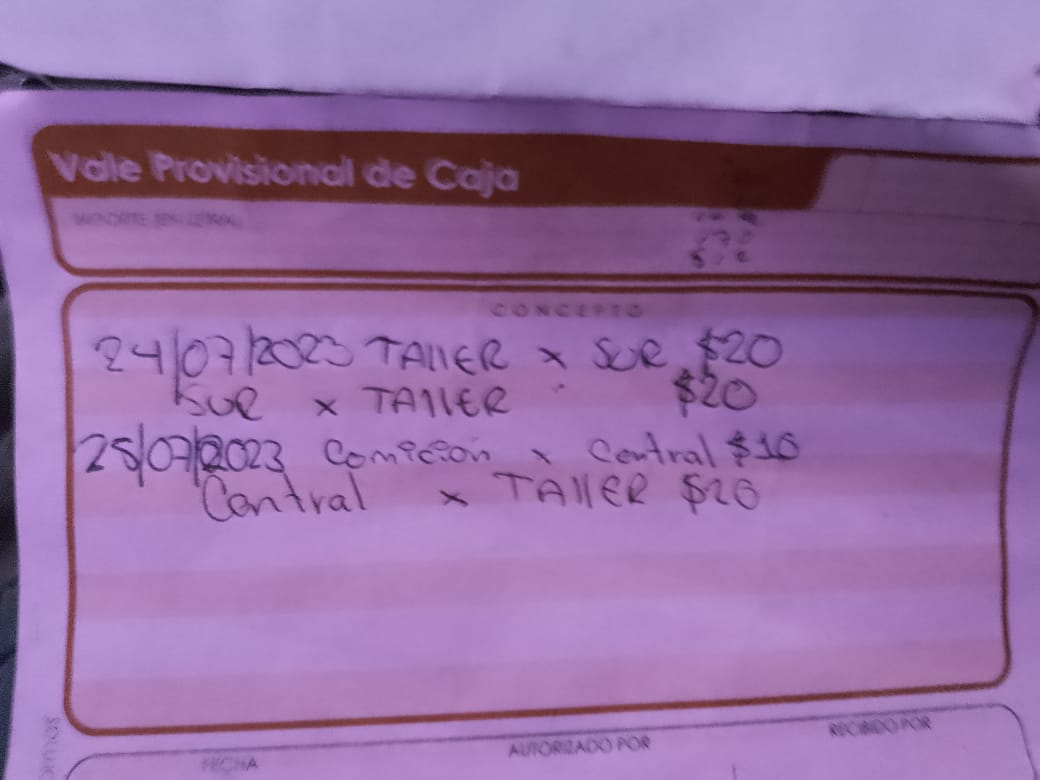 Vale Provisional de Caja
IMPORTE EN LETRA
CONCEPTO
24/07/2023 TALLER x SUR $20
SUR x TALLER $20
25/07/2023 Comicion x Central $10
Central x TALLER $20
FECHA
AUTORIZADO POR
RECIBIDO POR